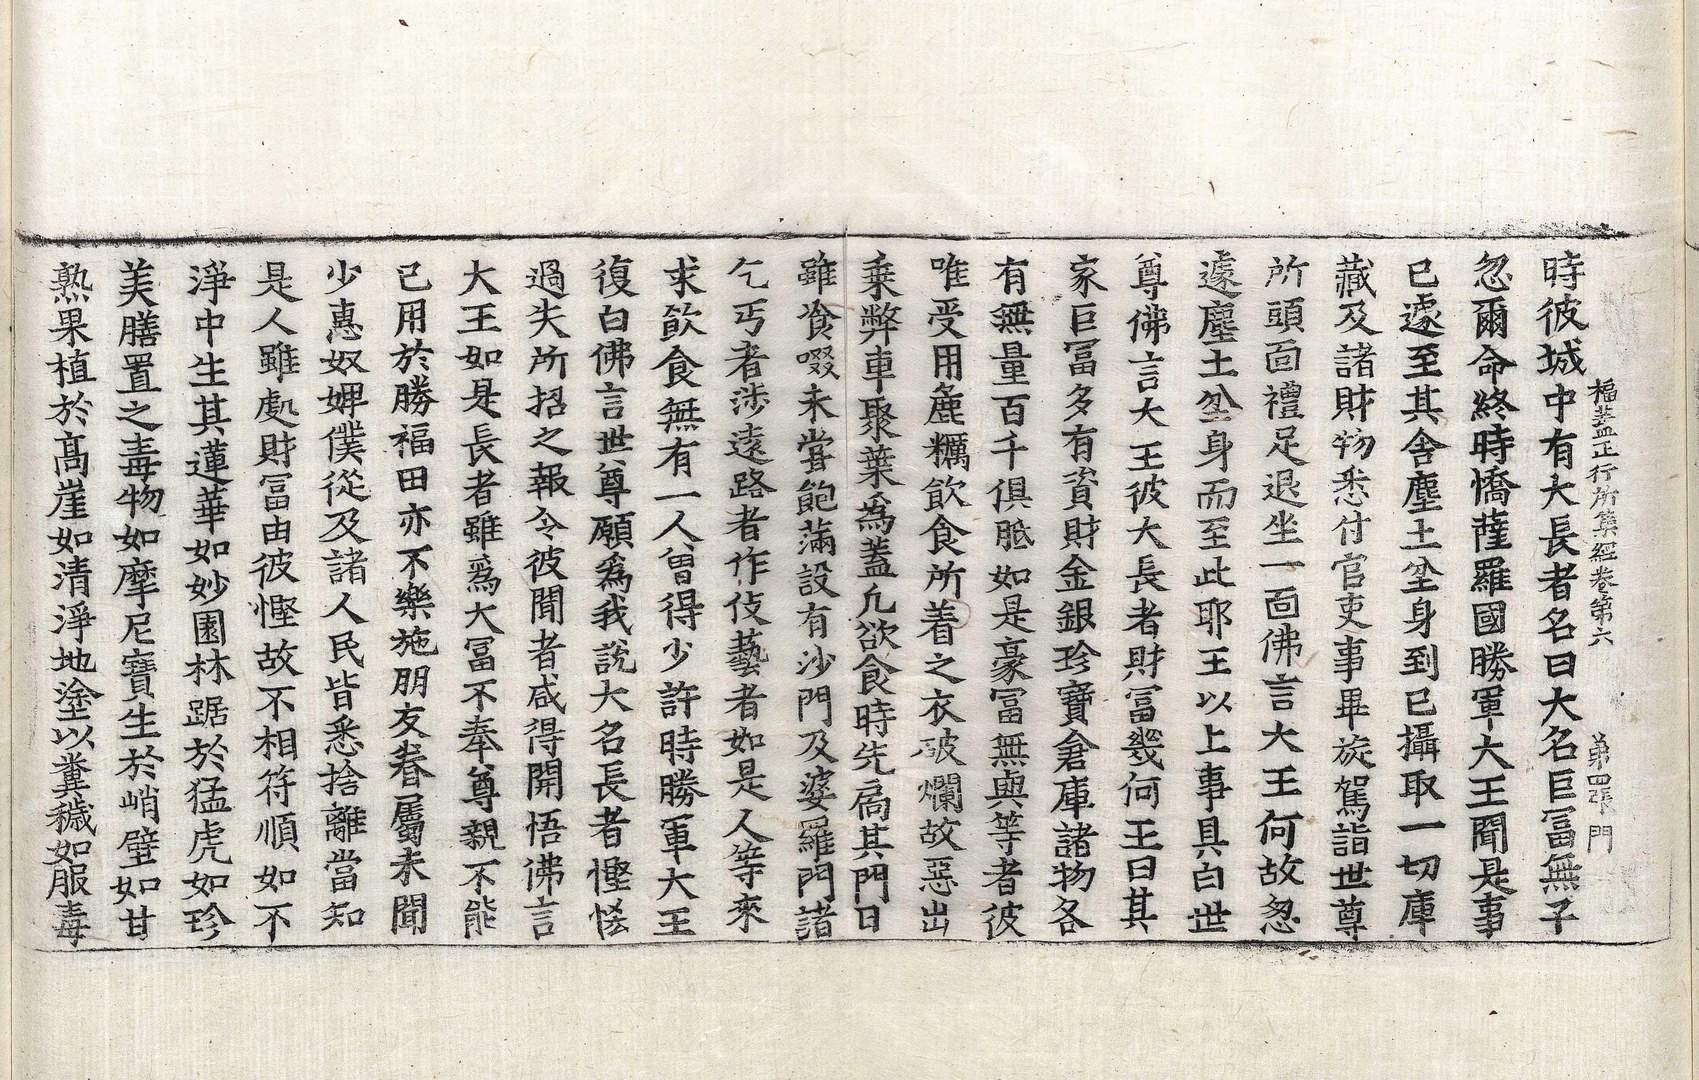 福蓋正行所集經卷第六 第四張 門
時彼城中有大長者名曰大名巨冨無子
忽爾命終時憍薩羅國勝軍大王聞是事
已遽至其舍塵土坌身到已攝取一切庫
藏及諸財物悉付官吏事畢旋駕詣世尊
所頭面禮足退坐一面佛言大王何故忽
遽塵土坌身而至此耶王以上事具白世
尊佛言大王彼大長者財冨幾何王曰其
家巨冨多有資財金銀珍寶倉庫諸物各
有無量百千俱胝如是豪冨無與等者彼
唯受用麁糲飲食所着之衣破爛故惡出
乗弊車聚葉爲蓋凢欲食時先扄其門日
雖飡啜未甞飽滿設有沙門及婆羅門諸
乞丐者涉遠路者作伎藝者如是人等來
求飮食無有一人曽得少許時勝軍大王
復白佛言世尊願爲我說大名長者慳悋
過失所招之報令彼聞者咸得開悟佛言
大王如是長者雖爲大冨不奉尊親不能
己用於勝福田亦不樂施朋友眷屬未聞
少惠奴婢僕從及諸人民皆悉捨離當知
是人雖處財冨由彼慳故不相符順如不
淨中生其蓮華如妙園林踞於猛虎如珍
美膳置之毒物如摩尼寶生於峭壁如甘
熟果植於髙崖如清淨地塗以糞穢如服毒